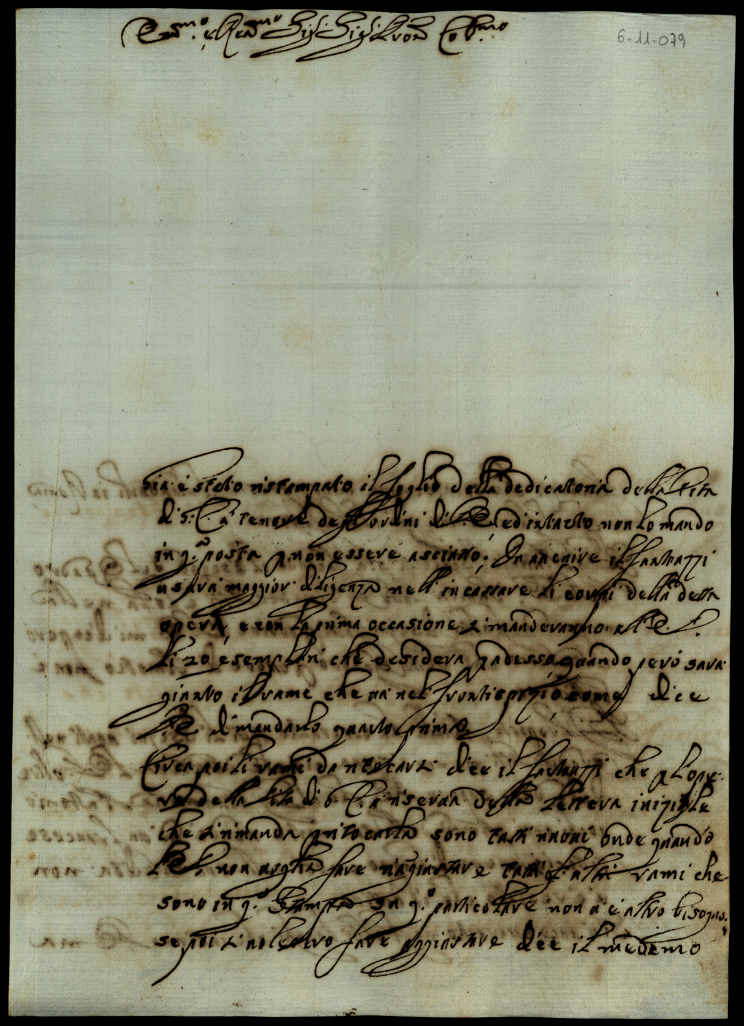 Em.mo e Rev.mo Sig. Sig. Pron Col.mo
6-11-079
Già è stato ristampato il foglio della dedicatoria della Vita
di S. C. a tenore degl'ordini di V. E. ed intanto non lo mando
in q.a posta p non essere asciutto; In avenire il Fantuzzi
userà maggior diligenza nell'incassare li corpi della detta
opera, e con la prima occasione si manderanno all'E. V.
li 20 esemplari che desidera p adesso, quando però sarà
giunto il rame che và nel frontispizio, come dice
V. E. di mandarlo quanto prima
Circa poi li rami da ritocarsi dice il Fantuzzi che p l'ope-
ra della Vita di S. C. a riserva della lettera iniziale
che si rimanda p ritocarla sono tutti nuovi onde quando
V. E. non voglia fare riagiustare tutti gl'altri rami che
sono in q.a stampa in q.o particolare non vi è altro bisogno.
se poi si volessero fare aggiustare dice il medemo